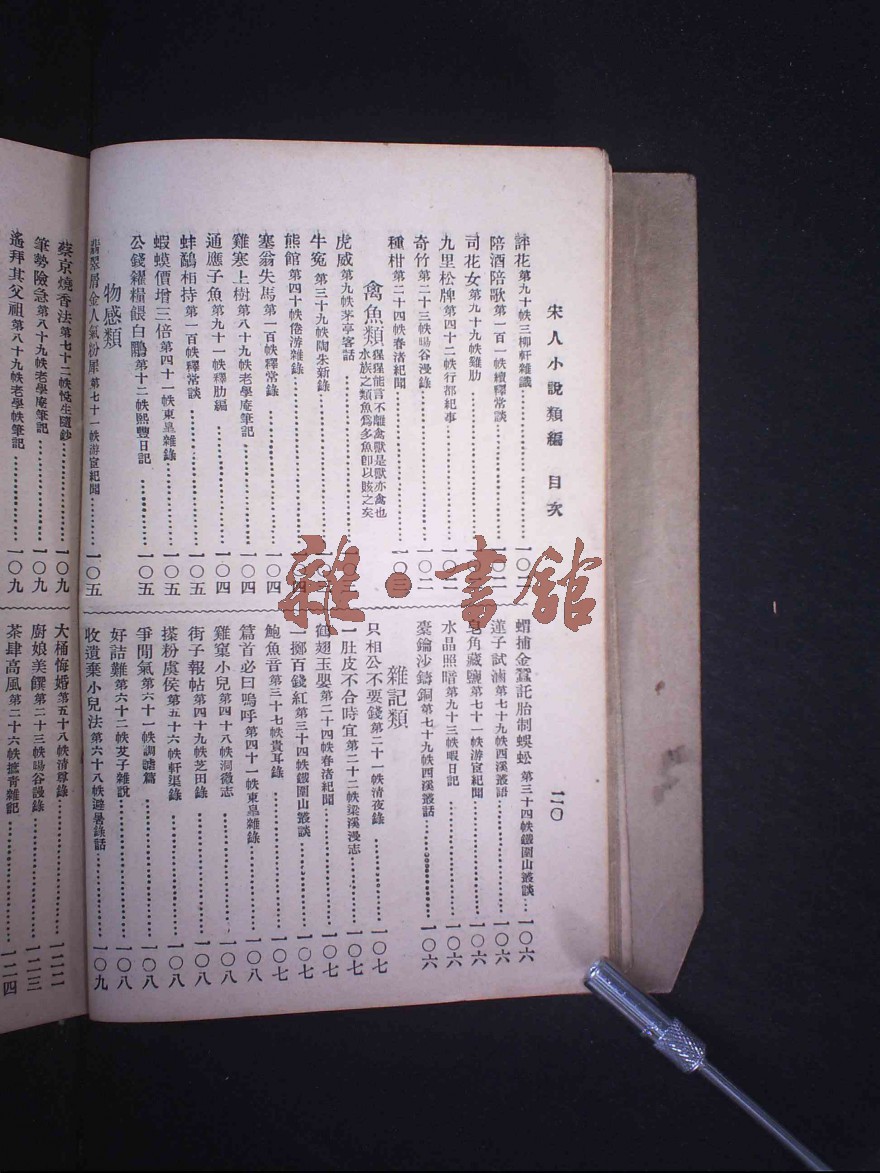 宋人小說類編　目次　二〇
評花第九十帙三柳軒雜識…………一〇二
陪酒陪歌第一百一帙續釋常談…………一〇二
司花女第九十九帙雞肋…………一〇二
九里松牌第四十二帙行都紀事…………一〇二
奇竹第二十三帙暘谷漫錄…………一〇二
種柑第二十四帙春渚紀聞…………一〇三
禽魚類 猩猩能言不離禽獸是獸亦禽也水族之類魚爲多魚卽以賅之矣
虎威第九帙茅亭客話…………一〇三
牛寃第三十九帙陶朱新錄…………
熊館第四十帙倦游雜錄…………一〇四
塞翁失馬第一百帙釋常談…………一〇四
雞寒上樹第八十九帙老學庵筆記…………一〇四
通應子魚第九十一帙釋肋編…………一〇四
蚌鷸相持第一百帙釋常談…………一〇五
蝦蟆價增三倍第四十一帙東臯雜錄…………一〇五
公錢糴糧餵白鷳第十二帙熙豐日記…………一〇五
物感類
翡翠屑金人氣粉犀第七十一帙游宦紀聞…………一〇五
蝟捕金蠶託胎制蜈蚣第三十四帙鐵圍山叢談…一〇六
蓮子試滷第七十九帙西溪叢語…………一〇六
皂角藏鹽第七十一帙游宦紀聞…………一〇六
水晶照暗第九十三帙暇日記…………一〇六
橐鑰沙鑄銅第七十九帙西溪叢話…………一〇六
雜記類
只相公不要錢第二十一帙清夜錄…………一〇七
一肚皮不合時宜第二十二帙梁溪漫志…………一〇七
翅玉嬰第二十四帙春渚紀聞…………一〇七
一擲百錢紅第三十四帙鐵圍山叢談…………一〇七
鮑魚音第三十七帙貴耳錄…………一〇七
篇首必曰嗚呼第四十一帙東臯雜錄…………一〇八
雞窠小兒第四十八帙洞微志…………一〇八
街子報帖第四十九帙芝田錄…………一〇八
搽粉虞侯第五十六帙軒渠錄…………一〇八
爭閒氣第六十一帙調謔篇…………一〇八
好詰難第六十二帙艾子雜說…………一〇八
收遺棄小兒法第六十八帙避暑錄話…………一〇九
蔡京燒香法第七十二帙悅生隨鈔…………一〇九
筆勢險急第八十九帙老學庵筆記…………一〇九
遙拜其父祖第八十九帙老學帙筆記…………一〇九
大桶悔婚第五十八帙清尊錄…………一二二
廚娘美饌第二十三帙暘谷謾錄…………一二三
茶肆高風第二十六帙摭青雜記…………一二四
雜·書館